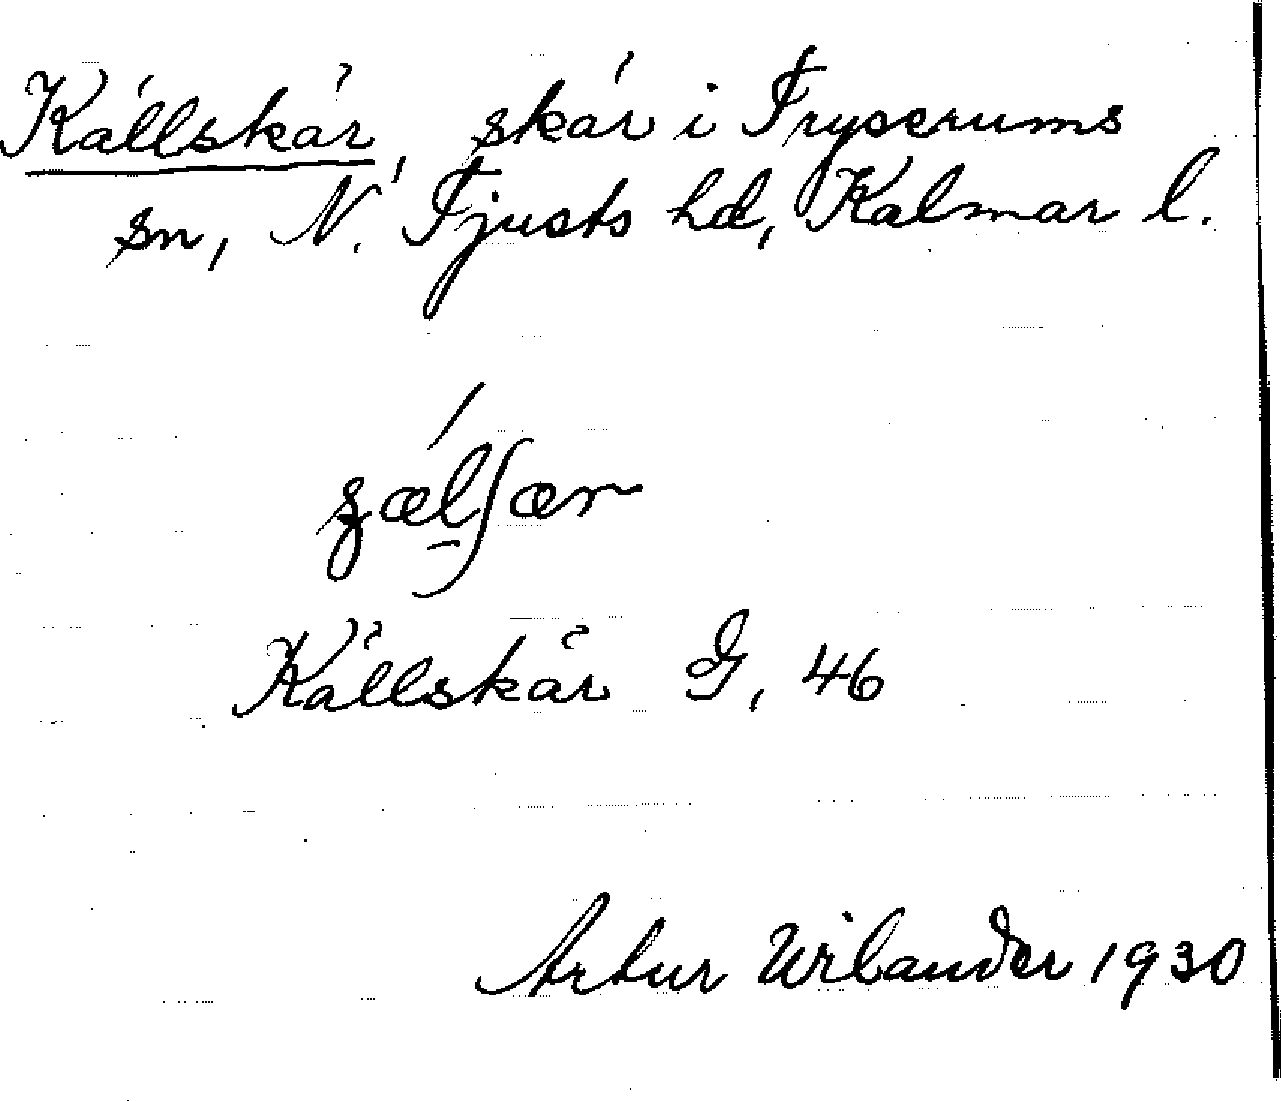 Källskär, skär i Tryserums
sn, N. Tjusts hd, Kalmar l.
Källskär G, 46
Artur Wilander 1930